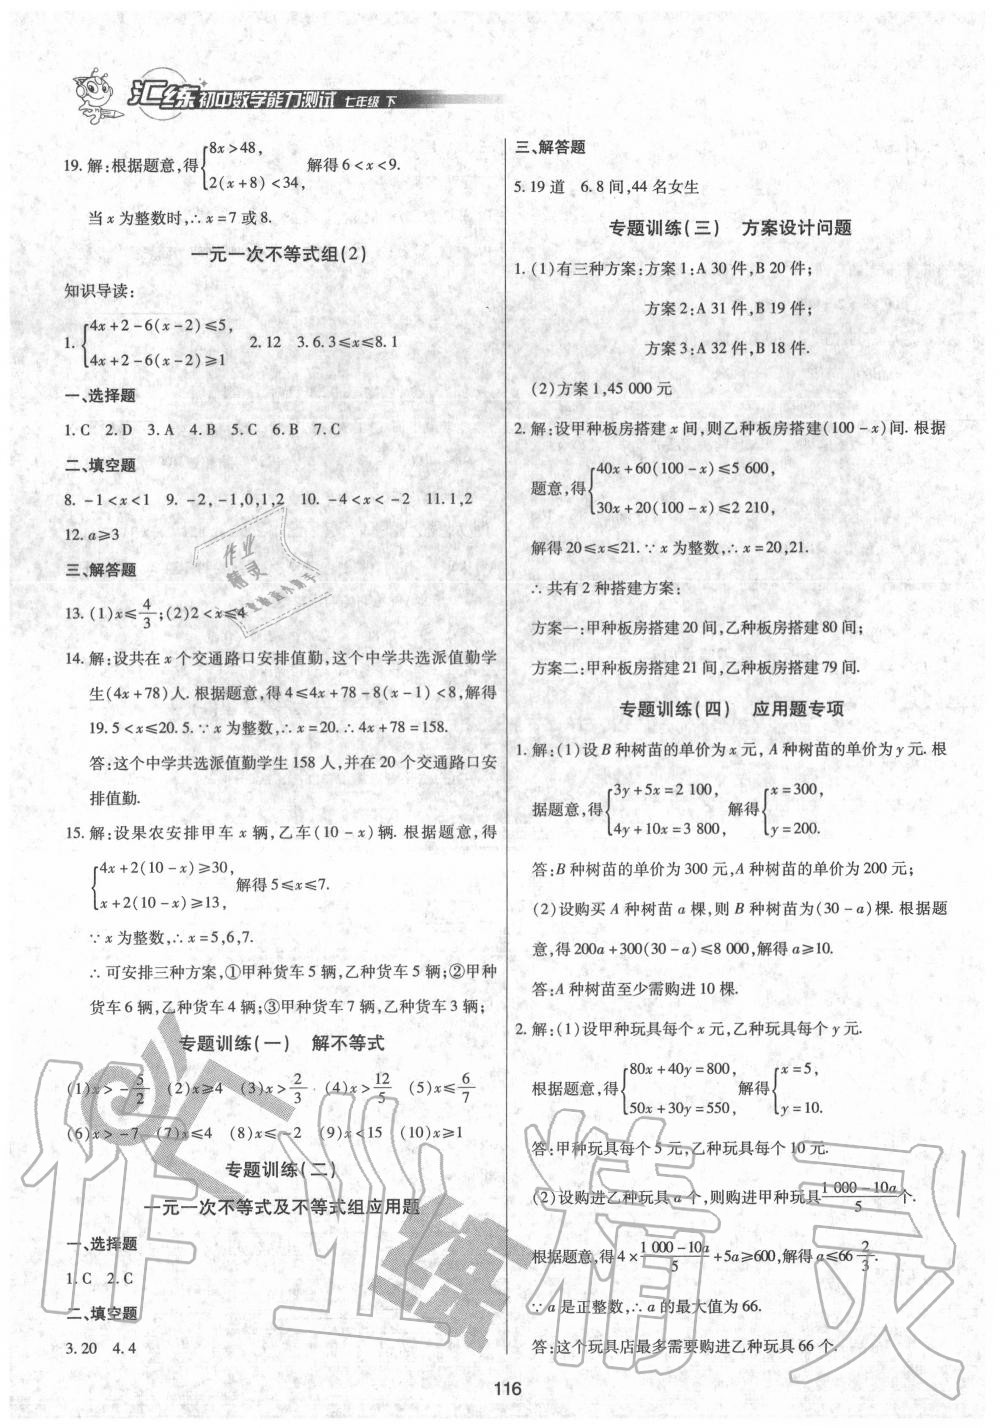 汇练 初中数学能力测试 七年级 下
19. 解:根据题意,得{8x>48, 2(x+8)<34, 解得6<x<9.
当x为整数时,∴x=7或8.
一元一次不等式组(2)
知识导读:
1. {4x+2-6(x-2)≤5, 4x+2-6(x-2)≥1 2.12 3.6.3≤x≤8.1
一、选择题
1.C 2.D 3.A 4.B 5.C 6.B 7.C
二、填空题
8. -1<x<1 9. -2,-1,0,1,2 10. -4<x<-2 11.1,2
12. a≥3
三、解答题
13. (1)x≤4/3;(2)2<x≤4
14. 解:设共在x个交通路口安排值勤,这个中学共选派值勤学
生(4x+78)人. 根据题意,得4≤4x+78-8(x-1)<8,解得
19.5<x≤20.5.∵x为整数,∴x=20.∴4x+78=158.
答:这个中学共选派值勤学生158人,并在20个交通路口安
排值勤.
15. 解:设果农安排甲车x辆,乙车(10-x)辆. 根据题意,得
{4x+2(10-x)≥30, x+2(10-x)≥13, 解得5≤x≤7.
∵x为整数,∴x=5,6,7.
∴可安排三种方案,①甲种货车5辆,乙种货车5辆;②甲种
货车6辆,乙种货车4辆;③甲种货车7辆,乙种货车3辆;
专题训练(一) 解不等式
(1)x>-5/2 (2)x≥4 (3)x>2/3 (4)x>12/5 (5)x≤6/7
(6)x>-7 (7)x≤4 (8)x≤-2 (9)x<15 (10)x≥1
专题训练(二)
一元一次不等式及不等式组应用题
一、选择题
1.C 2.C
二、填空题
3.20 4.4
三、解答题
5.19道 6.8间,44名女生
专题训练(三) 方案设计问题
1. (1)有三种方案:方案1:A 30件,B 20件;
方案2:A 31件,B 19件;
方案3:A 32件,B 18件.
(2)方案1,45 000元
2. 解:设甲种板房搭建x间,则乙种板房搭建(100-x)间. 根据
题意,得{40x+60(100-x)≤5 600, 30x+20(100-x)≤2 210,
解得20≤x≤21.∵x为整数,∴x=20,21.
∴共有2种搭建方案:
方案一:甲种板房搭建20间,乙种板房搭建80间;
方案二:甲种板房搭建21间,乙种板房搭建79间.
专题训练(四) 应用题专项
1. 解:(1)设B种树苗的单价为x元,A种树苗的单价为y元. 根
据题意,得{3y+5x=2 100, 4y+10x=3 800, 解得{x=300, y=200.
答:B种树苗的单价为300元,A种树苗的单价为200元;
(2)设购买A种树苗a棵,则B种树苗为(30-a)棵. 根据题
意,得200a+300(30-a)≤8 000,解得a≥10.
答:A种树苗至少需购进10棵.
2. 解:(1)设甲种玩具每个x元,乙种玩具每个y元.
根据题意,得{80x+40y=800, 50x+30y=550, 解得{x=5, y=10.
答:甲种玩具每个5元,乙种玩具每个10元.
(2)设购进乙种玩具a个,则购进甲种玩具(1 000-10a)/5个.
根据题意,得4×(1 000-10a)/5+5a≥600,解得a≤66 2/3.
∵a是正整数,∴a的最大值为66.
答:这个玩具店最多需要购进乙种玩具66个.
116
作业精灵
汇练
作业
精灵